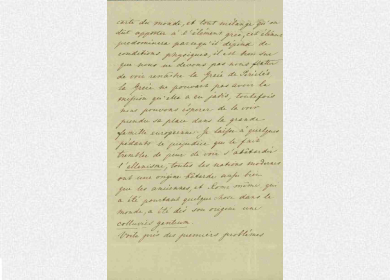 carte du monde, et tout mélange qu'on
doit apporter à l'élément grec, cet élément
prédominera parcequ'il dépend de
conditions physiques, il est bien sûr
que nous ne devons pas nous flatter
de voir renaître la Grèce de Périclès
la Grèce ne pouvant pas avoir la
mission qu'elle a eu jadis, toutefois
nous pouvons espérer de la voir
prendre sa place dans la grande
famille européenne. Je laisse à quelques
pédants le préjudice que le fait
trembler de peur de voir s'abâtardir
l'ellenisme; toutes les nations modernes
ont une origine bâtarde aussi bien
que les anciennes, et Rome même qui
a été pourtant quelque chose dans le
monde, a dû son origine à une
colluvies gentium.
Voilà près des premiers problèmes